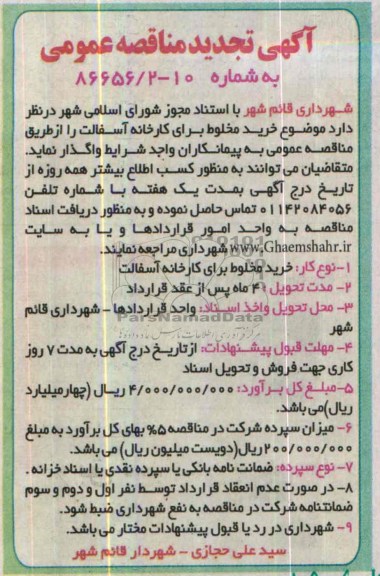 آگهی تجدید مناقصه عمومی
به شماره ۱۰-۸۶۶۵۶/۲
شهرداری قائم شهر با استناد مجوز شورای اسلامی شهر در نظر
دارد موضوع خرید مخلوط برای کارخانه آسفالت را ازطریق
مناقصه عمومی به پیمانکاران واجد شرایط واگذار نماید.
متقاضیان می توانند به منظور کسب اطلاع بیشتر همه روزه از
تاریخ درج آگهی بمدت یک هفته با شماره تلفن
۰۱۱۴۲۰۸۴۰۵۶ تماس حاصل نموده و به منظور دریافت اسناد
مناقصه به واحد امور قراردادها و یا به سایت
www.Ghaemshahr.ir شهرداری مراجعه نمایند.
۱-نوع کار: خرید مخلوط برای کارخانه آسفالت
۲- مدت تحویل : ۴ ماه پس از عقد قرارداد
۳- محل تحویل واخذ اسناد: واحد قراردادها - شهرداری قائم
شهر
ParsNamadData
۴- مهلت قبول پیشنهادات: ازتاریخ درج آگهی به مدت ۷ روز
کاری جهت فروش و تحویل اسناد
۵-مبلغ کل برآورد: ۴/۰۰۰/۰۰۰/۰۰۰ ریال (چهارمیلیارد
ریال)می باشد.
۶- میزان سپرده شرکت در مناقصه ۵% بهای کل برآورد به مبلغ
۲۰۰/۰۰۰/۰۰۰ریال(دویست میلیون ریال) می باشد.
۷- نوع سپرده: ضمانت نامه بانکی یا سپرده نقدی یا اسناد خزانه .
۸- در صورت عدم انعقاد قرارداد توسط نفر اول و دوم و سوم
ضمانتنامه شرکت در مناقصه به نفع شهرداری ضبط شود.
۹- شهرداری در رد یا قبول پیشنهادات مختار می باشد.
سید علی حجازی - شهردار قائم شهر